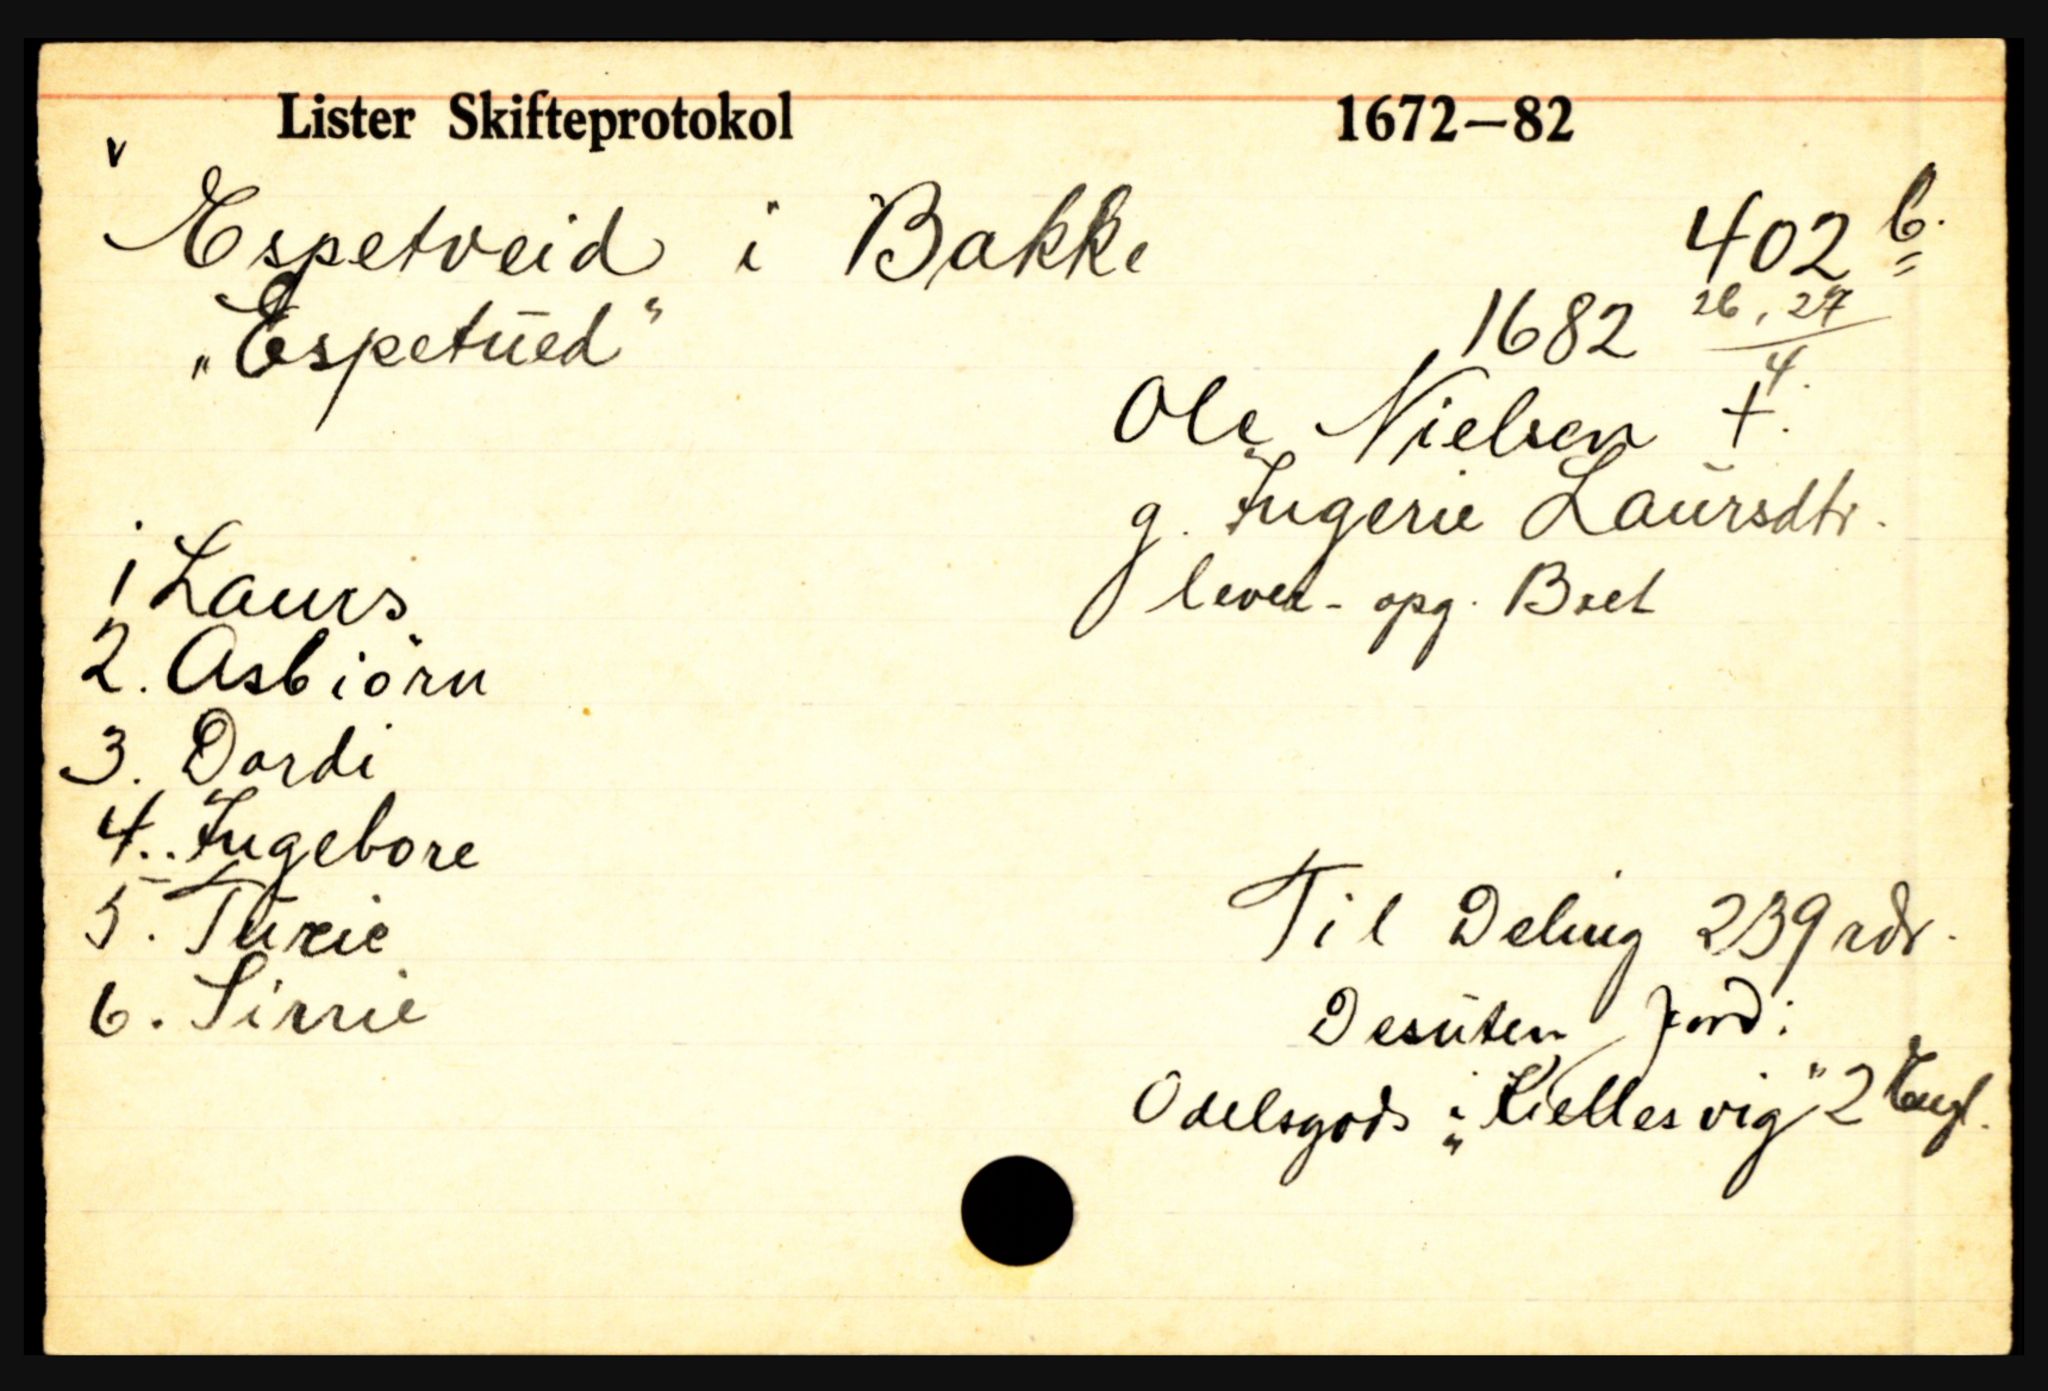 Lister Skifteprotokol 1672–82
v
Espetveid i Bakke 402 b.
„Espetŭed" 1682 26, 27/4.
Ole Nielsen †.
g. Ingerie Laŭrsdtr.
lever - opg. Boet
1 Laurs
2. Asbiörn
3. Dordi
4. Ingebore
5. Tŭrie
6. Sirrie
Til Deling 239 rdr.
Desŭten Jord:
Odelsgods i „Kiellesvig" 2 Engl.